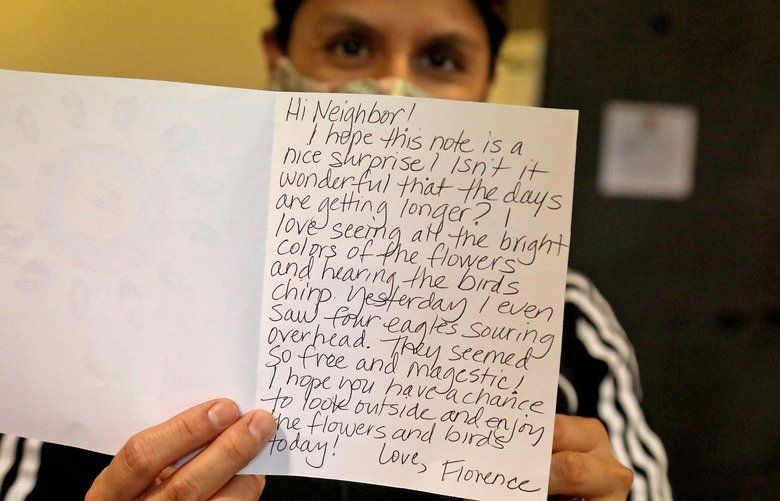 Hi Neighbor!
I hope this note is a
nice surprise! Isn't it
wonderful that the days
are getting longer? I
love seeing all the bright
colors of the flowers
and hearing the birds
chirp. Yesterday I even
saw four eagles souring
overhead. They seemed
so free and magestic!
I hope you have a chance
to look outside and enjoy
the flowers and birds
today! Love, Florence